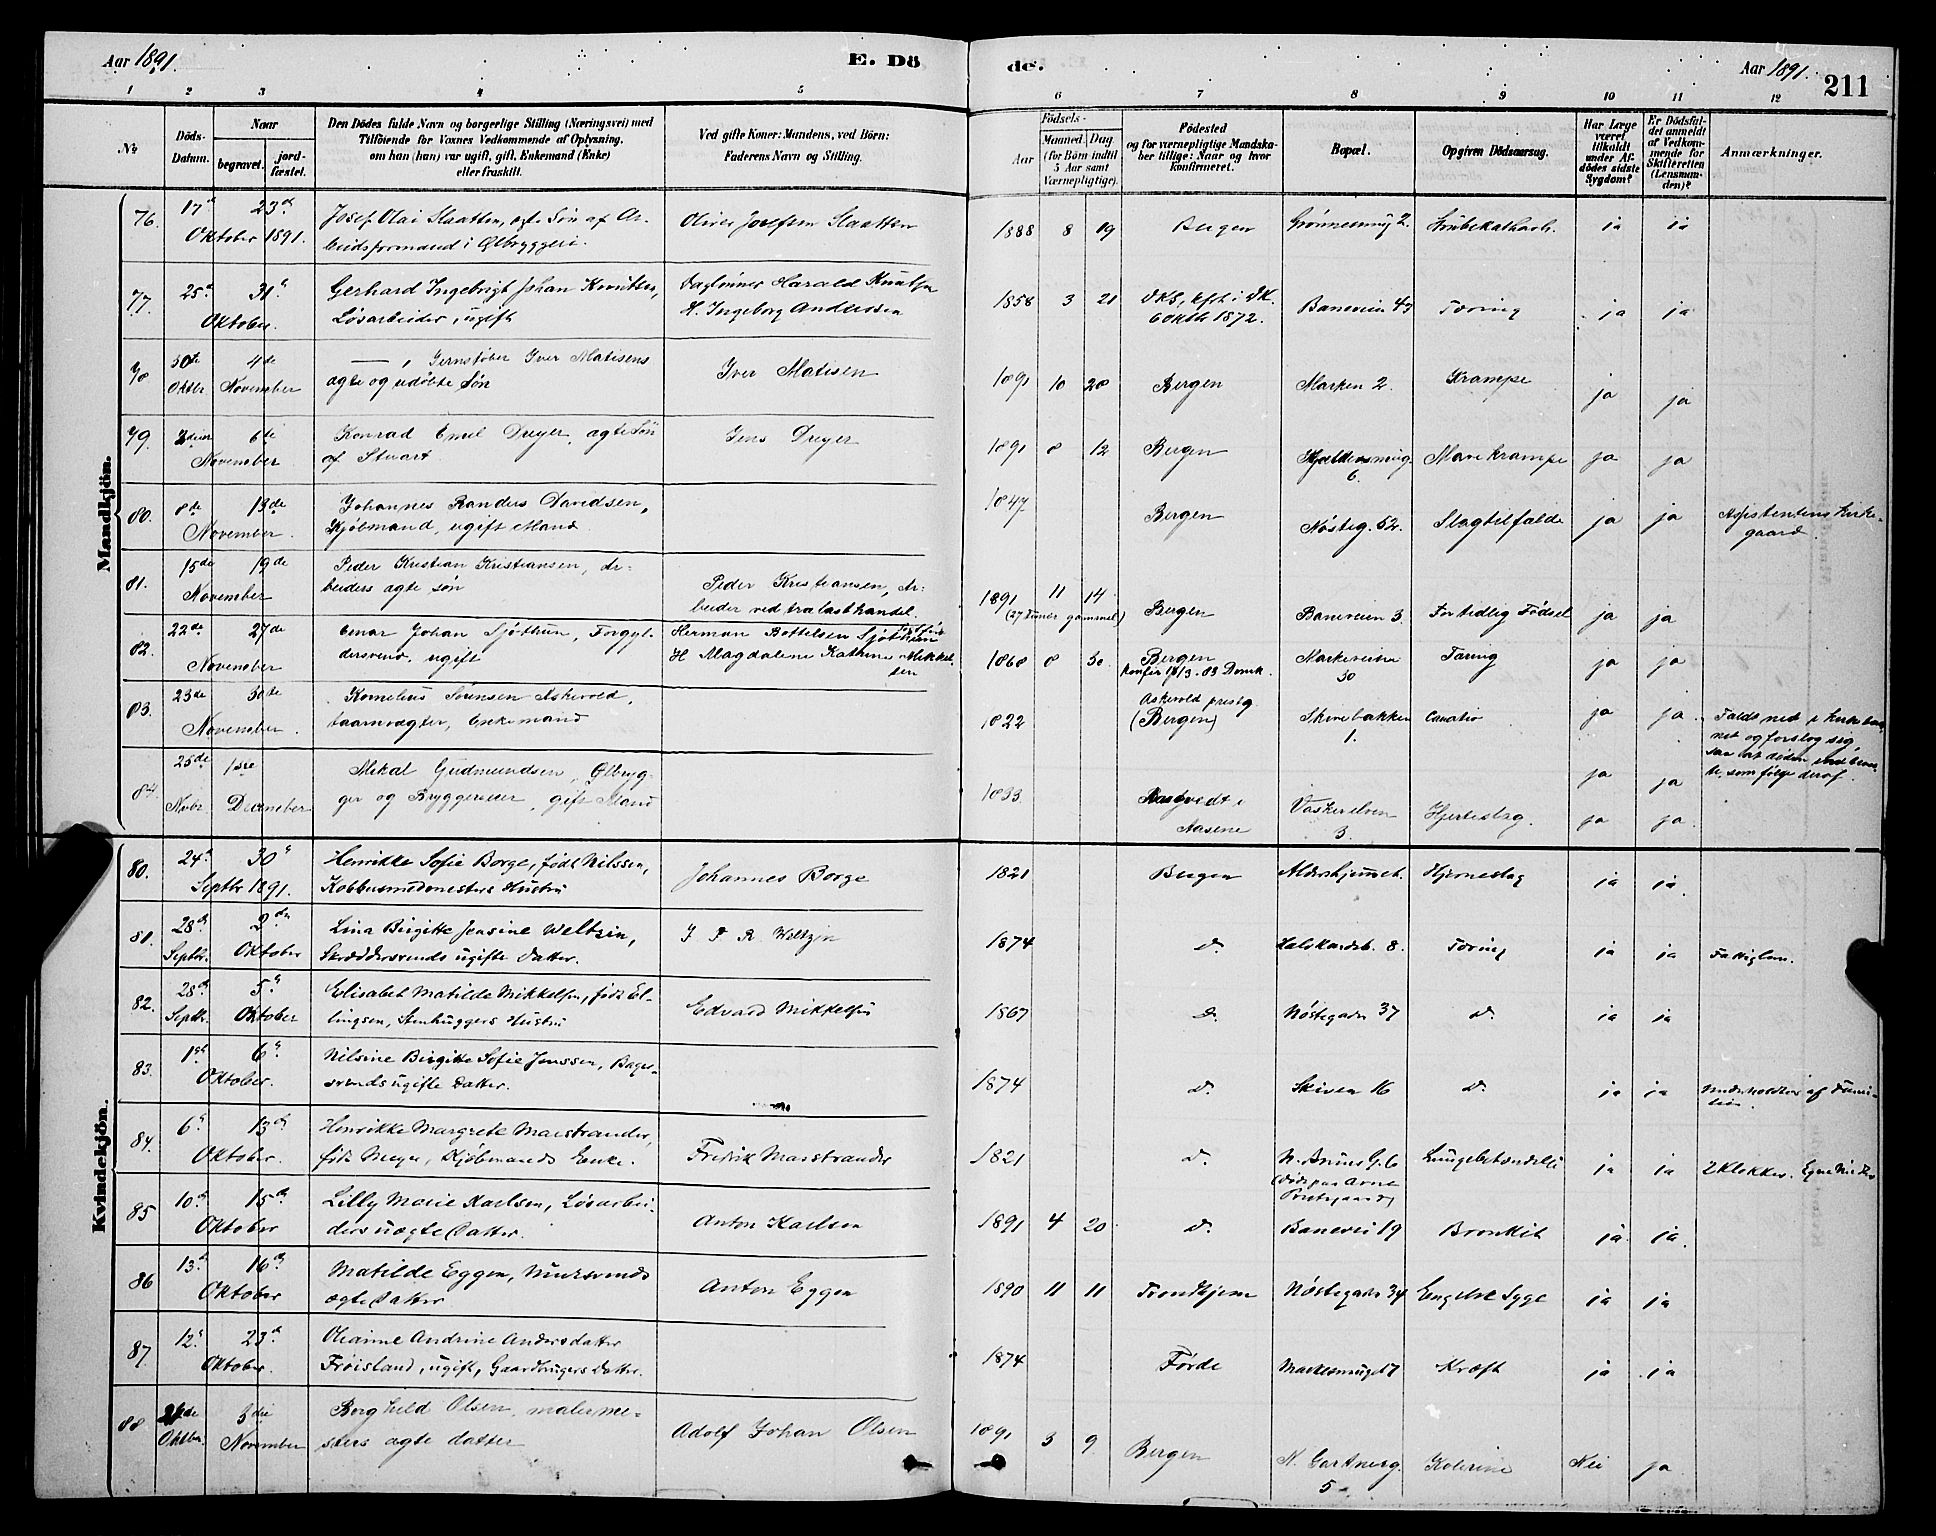 Aar 1891.
E. Dö
de.
Aar 1891.
211
1 2 3 4 5 6 7 8 9 10 11 12
No
Döds-
Datum.
Naar
begravet.
jord-
fæstet.
Den Dödes fulde Navn og borgerlige Stilling (Næringsvei) med
Tilföiende for Voxnes Vedkommende af Oplysning,
om han (hun) var ugift, gift, Enkemand (Enke)
eller fraskilt.
Ved gifte Koner: Mandens, ved Börn:
Faderens Navn og Stilling.
Födsels-
Aar
Maaned Dag
(for Börn indtil
5 Aar samt
Værnepligtige).
Födested
og for værnepligtige Mandska-
ber tillige: Naar og hvor
konfirmeret.
Bopæl.
Opgiven Dödsaarsag.
Har Læge
været
tilkaldt
under Af-
dödes sidste
Sygdom?
Er Dödsfal-
det anmeldt
af Vedkom-
mende for
Skifteretten
(Lensman-
den)?
Anmærkninger.
Mandkjön.
76. 17de 23de Josef Olai Slaatten, ægte Søn af Ar-
Oktober 1891. beidsformand i Ølbryggeri.
Oliver Josefsen Slaatten 1888 8 19 Bergen Grønnesmug 2. Strubekatharh. ja ja
77. 25de 31te Gerhard Ingebrigt Johan Knutsen, Daglønner Harald Knutsen
Oktober. Løsarbeider, ugift H. Ingeborg Anderssen
1858 3 21 DKS, kft i DK. Baneveien 47 Tæring ja ja
6 Oktb 1872.
78 30te 4de —, Jernstøber Iver Matisens Iver Matisen
Oktbr November ægte og udøbte Søn
1891 10 28 Bergen Marken 2. Krampe ja ja
79. 6te Konrad Emil Dreyer, ægte Søn Jens Dreyer
November af Stuart.
1891 8 12 Bergen 6. Mavekrampe ja ja
80. 8de 13de Johannes Randers Davidsen,
November. Kjøbmand, ugift Mand.
1847 Bergen Nøsteg. 52. Slagtilfælde ja ja Assistentens Kirke-
gaard.
81. 15de 19de Peder Kristian Kristiansen, Ar- Peder Kristiansen, Ar-
November beiders ægte søn beider ved trælasthandel.
1891 11 14 Bergen Baneveien 3 For tidlig Fødsel ja ja
(27 Timer gammel)
82. 22de 27de Einar Johan Sjøthun, Forgyl- Herman Bottelsen Sjøthun
November dersvend, ugift H Magdalene Kathrine Mikkel-
sen
1868 8 30 Bergen Markeveien Tæring ja ja
30
83. 23de 30te Kornelius Sørensen Askevold,
November. taarnvægter, Enkemand
1822 Askevold presig Skivebakken ja ja Faldt ned i Kirketaar-
(Bergen) 1. net og forslog sig,
saa at døden
som følge deraf.
84. 25de 1ste Mikal Gudmundsen, Ølbryg-
Novbr December ger og Bryggerieier, gift Mand
1833 i Vaskerelven Hjerteslag. ja ja
Aasene 3.
Kvindekjön.
80. 24de 30te Henrikke Sofie Borge, født Nilssen, Johannes Borge
Septbr 1891. Kobbersmedmesters Hustru
1821 Bergen Aldershjemmet. Hjerneslag ja ja
81. 28de 2den Lina Birgitte Jensine Weltzin, J F R Weltzin
Septbr. Oktober Skræddersvends ugifte Datter.
1874 D. 8. Tæring ja ja Fattiglem.
82. 28de 5te Elisabet Matilde Mikkelsen, født El- Edvard Mikkelsen
Septbr. Oktober lingsen, Stenhuggers Hustru
1867 D. Nøstegaden 37 D. ja ja
83. 1ste 6te Nilsine Birgitte Sofie Jenssen, Bager-
Oktober. svends ugifte Datter.
1874 D. Skiven 16 D. ja ja Underholdtes af Fami-
lien.
84. 6te 13de Henrikke Margrete Marstrander, Fredrik Marstrander
Oktober. født Meyer, Kjøbmands Enke.
1821 D. Lungebetændelse ja ja 2 Klokker.
85 10de 15de Lilly Marie Karlsen, Løsarbei- Anton Karlsen
Oktober ders uægte Datter.
1891 4 20 D. Banevei 19 Bronkit ja ja
86 13de 16de Matilde Eggen, Murersvends Anton Eggen
Oktober ægte Datter
1890 11 11 Trondhjem Nøstegaden 34 Engelsk Syge ja ja
87 12te 23de Oleanne Andrine Andersdatter
Oktober. Frøisland, ugift, Gaardbrugers Datter.
1874 Førde Kræft ja ja
88 3die Borghild Olsen, malerme- Adolf Johan Olsen
Oktbr. November sters ægte datter
1891 3 9 Bergen N. Gartnerg. Kolerine Nei ja
5